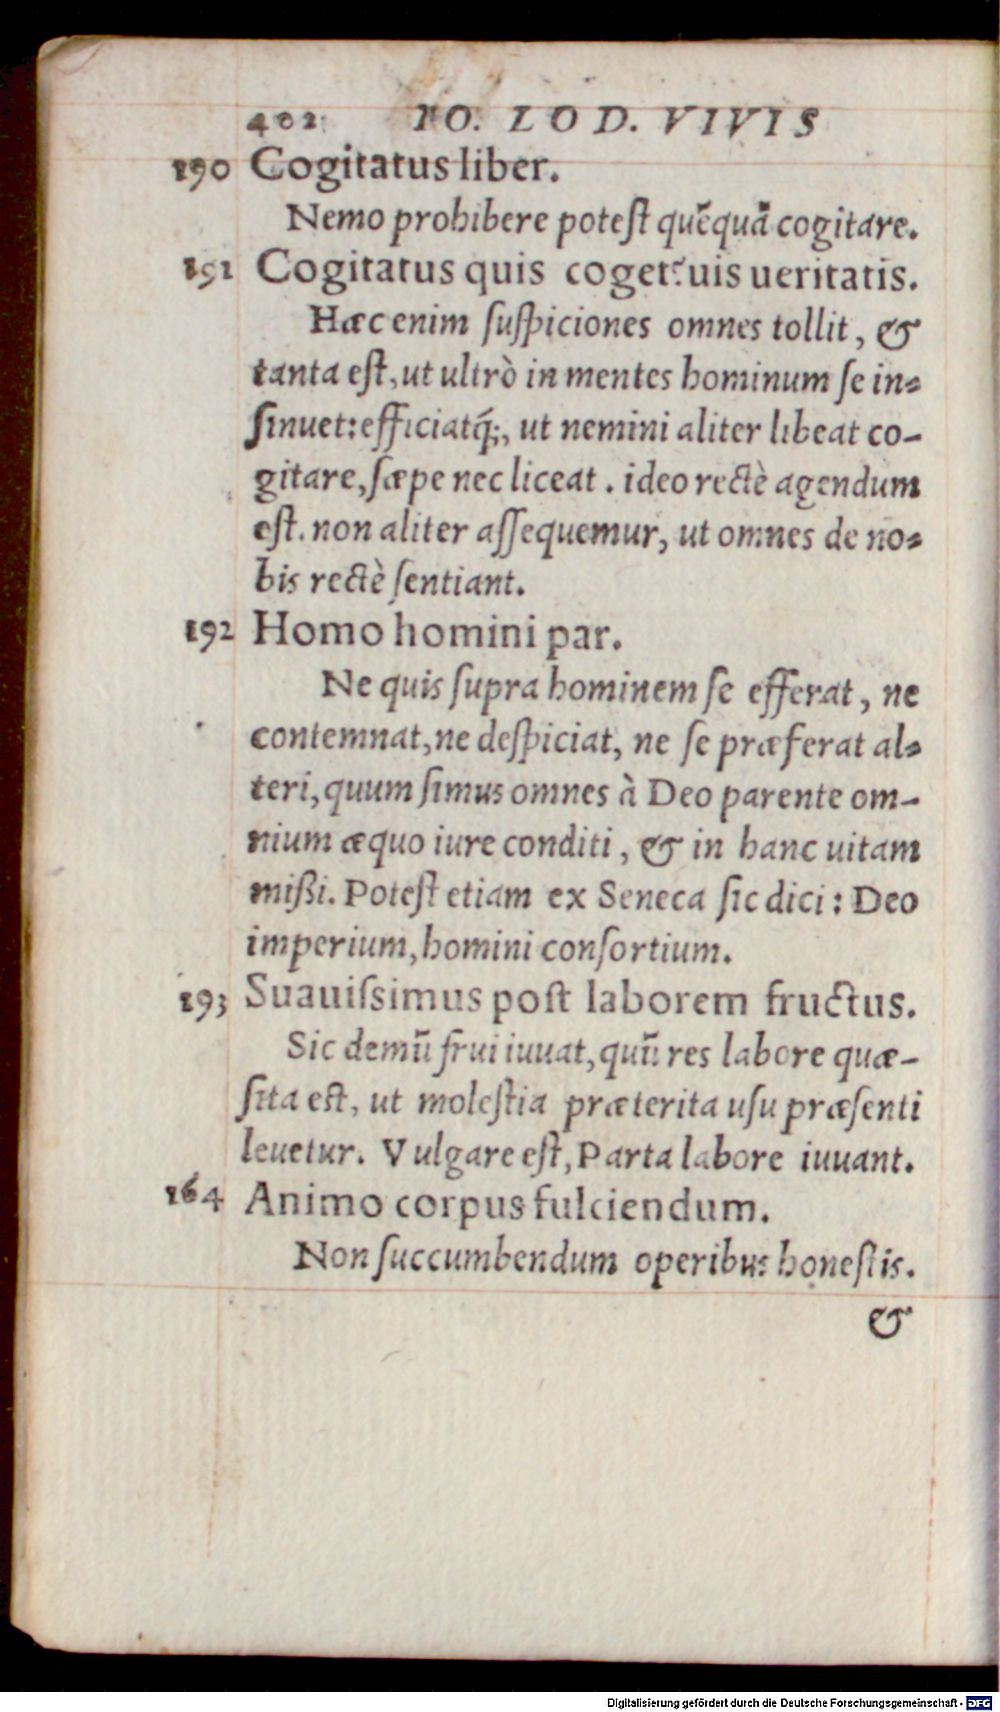 402 IO. LOD. VIVIS
190 Cogitatus liber.
Nemo prohibere poteſt quẽquã cogitare.
191 Cogitatus quis coget? uis ueritatis.
Hæc enim ſuſpiciones omnes tollit, &
tanta eſt, ut ultrò in mentes hominum ſe in-
ſinuet: efficiatq́;, ut nemini aliter libeat co-
gitare, ſæpe nec liceat. ideo rectè agendum
eſt. non aliter aſſequemur, ut omnes de no-
bis rectè ſentiant.
192 Homo homini par.
Ne quis ſupra hominem ſe efferat, ne
contemnat, ne deſpiciat, ne ſe præferat al-
teri, quum ſimus omnes à Deo parente om-
nium æquo iure conditi, & in hanc uitam
mißi. Poteſt etiam ex Seneca ſic dici: Deo
imperium, homini conſortium.
193 Suauiſsimus poſt laborem fructus.
Sic demũ frui iuuat, quũ res labore quæ-
ſita eſt, ut moleſtia præterita uſu præſenti
leuetur. Vulgare eſt, Parta labore iuuant.
164 Animo corpus fulciendum.
Non ſuccumbendum operibus honeſtis.
&
Digitalisierung gefördert durch die Deutsche Forschungsgemeinschaft - DFG